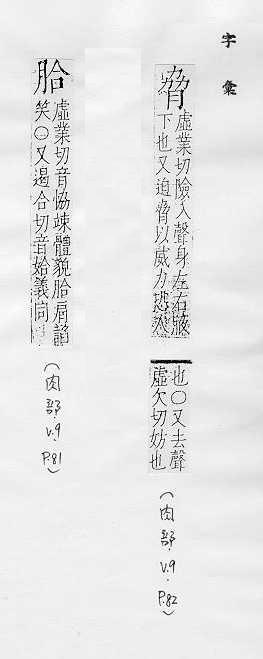 字彙
脅
虛業切險入聲身左右腋
下也又迫脅以威力恐
也○又去聲
虛欠切妨也
(肉部.V.9.P.82)
胎
虛業切音協竦體貌胎肩諂
笑○又遏合切音姶義同
(肉部.V.9.P.81)